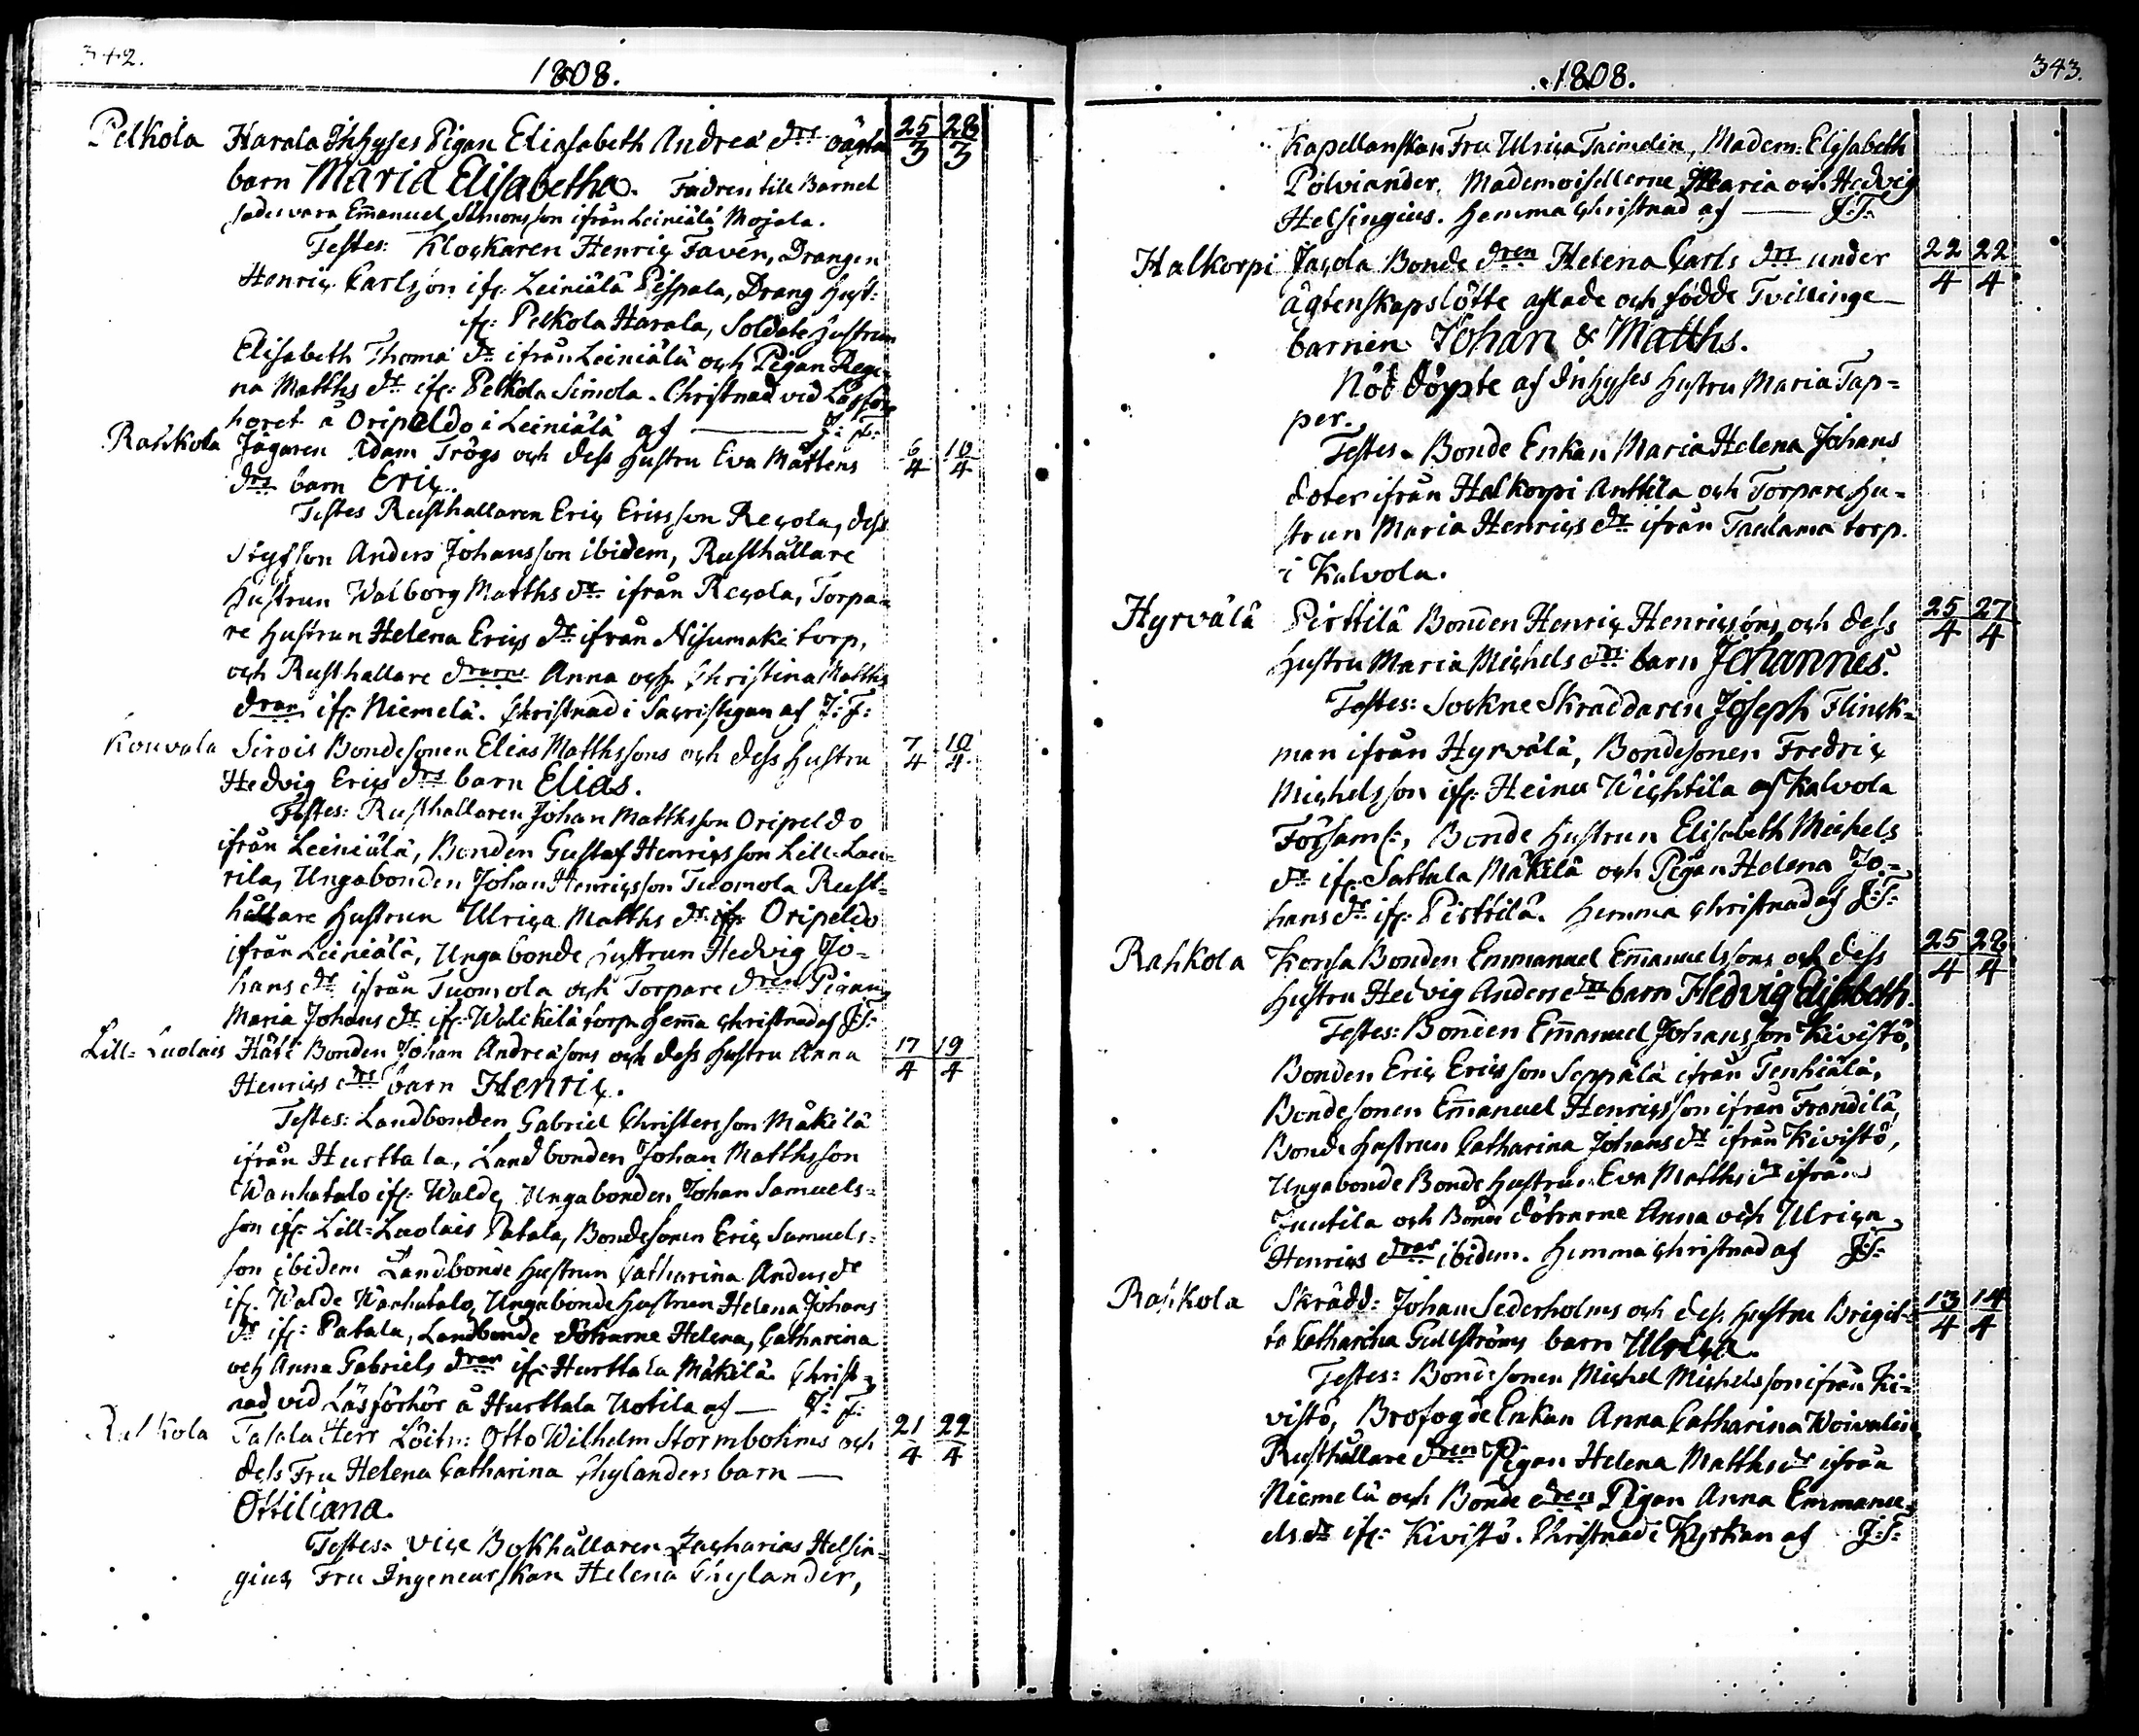 342.
1808.
Pelkola Harala Inhyses Pigan Elisabeth Andreæ drs oägta 25/3 28/3
barn Maria Elisabetha. Fadren till Barnet
sades vara Em̄anuel Simonsson ifrån Leiniälä Mojala.
Testes: Klockaren Henric Favén, Drängen
Henric Carlsson ifr: Leiniälä Pispala, Dräng Hust:
ifr: Pelkola Harala, Soldate Hustrun
Elisabeth Thomæ dr ifrån Leiniälä och Pigan Regi-
na Matths dr ifr: Pelkola Simola. Christnad vid Läsför-
höret å Oripeldo i Leiniälä af — J: F:
Rahkola Jägaren Adam Trögs och dess Hustru Eva Mårtens 6/4 10/4
drs barn Eric.
Testes Rusthållaren Eric Ericsson Recola, dess
Styfson Anders Johansson ibidem, Rusthållare
Hustrun Walborg Matths dr ifrån Recola, Torpa=
re Hustrun Helena Erics dr ifrån Nisumäki torp,
och Rusthållare drarne Anna och Christina Matths
drar ifr: Niemelä. Christnad i Sacristigan af J: F:
Kouvala Sirois Bondesonen Elias Matthssons och dess Hustru 7/4 10/4
Hedvig Erics drs barn Elias.
Testes: Rusthållaren Johan Matthsson Oripeldo
ifrån Leiniälä, Bonden Gustaf Henricsson Lill-Lau-
rila, Ungabonden Johan Henricsson Tuomola Rust=
hållare Hustrun Ulrica Matths dr ifr Oripeldo
ifrån Leiniälä, Ungabonde Hustrun Hedvig Jo=
hans dr ifrån Tuomola och Torpare dren Pigan
Maria Johans dr ifr: Walikilä torp. Hem̄a Christnad af J:F:
Lill=Luolais Häti Bonden Johan Andreæsons och dess Hustru Anna 17/4 19/4
Henrics drs barn Henric.
Testes: Landbonden Gabriel Christersson Mäkilä
ifrån Hurttala, Landbonden Johan Matthsson
Wanhatalo ifr: Walde, Ungabonden Johan Samuels=
son ifr: Lill=Luolais Patala, Bondesonen Eric Samuels=
son ibidem Landbonde Hustrun Catharina Anders dr
ifr. Walde Wanhatalo, Ungabonde Hustrun Helena Johans
dr ifr: Patala, Landbonde dötrarne Helena, Catharina
och Anna Gabriels drar ifr: Hurttala Mäkilä. Christ=
nad vid Läsförhör å Hurttala Uotila af — J: F:
Rahkola Tasala Herr Löitn: Otto Wilhelm Stormbohms och 21/4 22/4
dess Fru Helena Catharina Chylanders barn —
Ottiliana.
Testes: vice Bokhållaren Zacharias Helsin=
gius, Fru Ingeneurskan Helena Chylander,
1808.
343.
Kapellanskan Fru Ulrica Taimelin, Madem: Elisabeth
Polviander, Mademoisellerne Maria och Hedvig
Helsingius. Hemma Christnad af — J:F:
Halkorpi Jacola Bonde dren Helena Carls drs under 22/4 22/4
ägtenskapslöfte aflade och födde Tvillinge—
barnen Johan & Matths.
Nöd döpte af Inhyses Hustru Maria Tap=
per.
Testes. Bonde Enkan Maria Helena Johans
doter ifrån Halkorpi Anttila och Torpare Hu=
strun Maria Henrics dr ifrån Taulama torp.
i Kalvola.
Hyrvälä Pirttilä Bonden Henric Henricsons och dess 25/4 27/4
Hustru Maria Michels drs barn Johannes.
Testes: Sockne Skräddaren Joseph Flinck=
man ifrån Hyrvälä, Bondesonen Fredric
Michelsson ifr: Heinu Wichtila af Kalvola
Församl:, Bonde Hustrun Elisabeth Michels
dr ifr: Sattula Mäkilä och Pigan Helena Jo=
hans dr ifr: Pirttilä. Hemma Christnad af J:F:
Rahkola Konsa Bonden Emmanuel Em̄anuelssons och dess 25/4 28/4
Hustru Hedvig Anders drs barn Hedvig Elisabeth.
Testes: Bonden Em̄anuel Johansson Kivistö,
Bonden Eric Ericsson Seppälä ifrån Tenhiälä,
Bondesonen Em̄anuel Henricsson ifrån Frandilä,
Bonde Hustrun Catharina Johans dr ifrån Kivistö,
Ungabonde Bonde Hustrun Eva Matths dr ifrån
Juutila och Bonde dötrarne Anna och Ulrica
Henrics drar ibidem. Hemma Christnad af J:F:
Rahkola Skrädd: Johan Sederholms och dess Hustru Brigit= 13/4 14/4
ta Catharina Gullströms barn Ulrica.
Testes: Bondesonen Michel Michelsson ifrån Ki=
vistö, Brofogde Enkan Anna Catharina Woivalin
Rusthållare dren Pigan Helena Matths dr ifrån
Niemelä och Bonde dren Pigan Anna Emmanu=
els dr ifr: Kivistö. Christnad i Kyrkan af J:F: